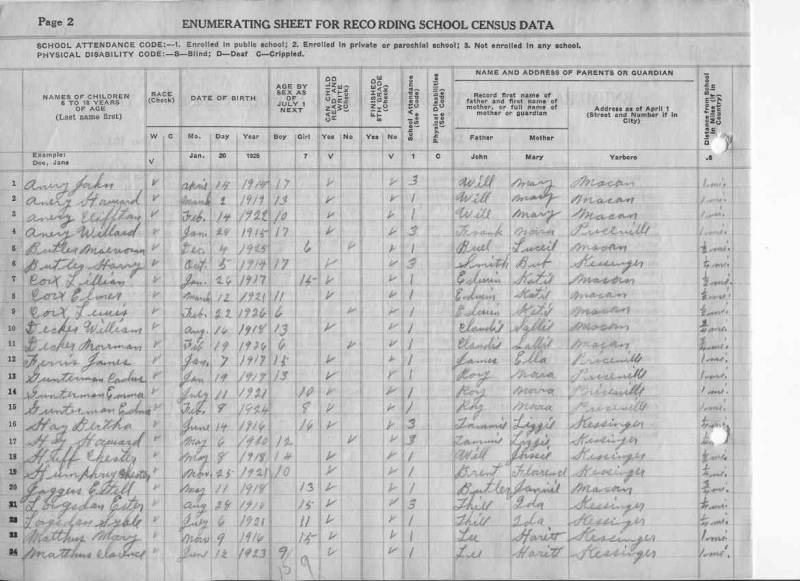 Page 2
ENUMERATING SHEET FOR RECORDING SCHOOL CENSUS DATA
SCHOOL ATTENDANCE CODE:—1. Enrolled in public school; 2. Enrolled in private or parochial school; 3. Not enrolled in any school.
PHYSICAL DISABILITY CODE:—B—Blind; D—Deaf C—Crippled.
NAMES OF CHILDREN 6 TO 18 YEARS OF AGE (Last name first)
RACE (Check)
W C
DATE OF BIRTH
Mo. Day Year
AGE BY SEX AS OF JULY 1 NEXT
Boy Girl
CAN CHILD READ AND WRITE (Check)
Yes No
FINISHED 8TH GRADE (Check)
Yes No
School Attendance (See Code)
Physical Disabilities (See Code)
NAME AND ADDRESS OF PARENTS OR GUARDIAN
Record first name of father and first name of mother, or full name of mother or guardian
Father Mother
Address as of April 1 (Street and Number if in City)
Distance from School in Miles (if in Country)
Example: Doe, Jane V Jan. 20 1925 7 V V 1 C John Mary Yarboro .5
1 Avery John V April 14 1914 17 V V 3 Will Mary Macan 1 mi.
2 Avery Howard V March 2 1919 13 V V 1 Will Mary Macan 1 mi.
3 Avery V Feb. 14 1922 10 V V 1 Will Mary Macan 1 mi.
4 Avery Willard V Jan. 1915 17 V V 3 Frank Nora Priceville 1 mi.
5 Butler V Dec. 4 1925 6 V V 1 Buel Macan mi.
6 Butler Harry V Oct. 5 1914 17 V V 3 Smith Kessinger mi.
7 Cox Lillian V Jan. 26 1917 15 V V 1 Edwin Katie Macan mi.
8 Cox Elmer V March 12 1921 11 V V 1 Edwin Katie Macan mi.
9 Cox Lewis V Feb. 22 1926 6 V V 1 Edwin Katie Macan mi.
10 William V Aug. 16 1918 13 V V 1 Sallie Macan mi.
11 V Feb 19 1926 6 V V 1 Sallie Macan mi.
12 Ferris James V Jan. 7 1917 15 V V 1 James Ella Priceville 1 mi.
13 Gunterman V Jan 19 1919 13 V V 1 Roy Priceville 1 mi.
14 Gunterman Emma V July 11 1921 10 V V 1 Roy Priceville 1 mi.
15 Gunterman Edna V Feb. 8 1924 8 V V 1 Roy Priceville 1 mi.
16 Hay Bertha V June 14 1916 16 V V 3 Lizzie Kessinger mi.
17 Hay Howard V May 6 1920 12 V V 3 Lizzie Kessinger mi.
18 Huff Chester V May 8 1918 14 V V 1 Will Kessinger mi.
19 Humphry Chester V Nov. 25 1921 10 V V 1 Brent Florence Kessinger mi.
20 V May 11 1918 13 V V 1 Butler Macan mi.
21 Logsdon Ester V Aug 28 1916 15 V V 3 Ida Kessinger mi.
22 Logsdon V July 6 1921 11 V V 1 Ida Kessinger mi.
23 Matthis Mary V Nov 9 1916 15 V V 1 Lee Kessinger 1 mi.
24 Matthis Clarence V June 12 1923 9 V V 1 Lee Kessinger 1 mi.
15 9